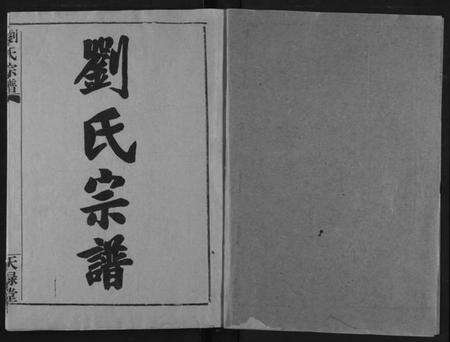 劉氏宗譜
劉氏宗譜
天祿堂